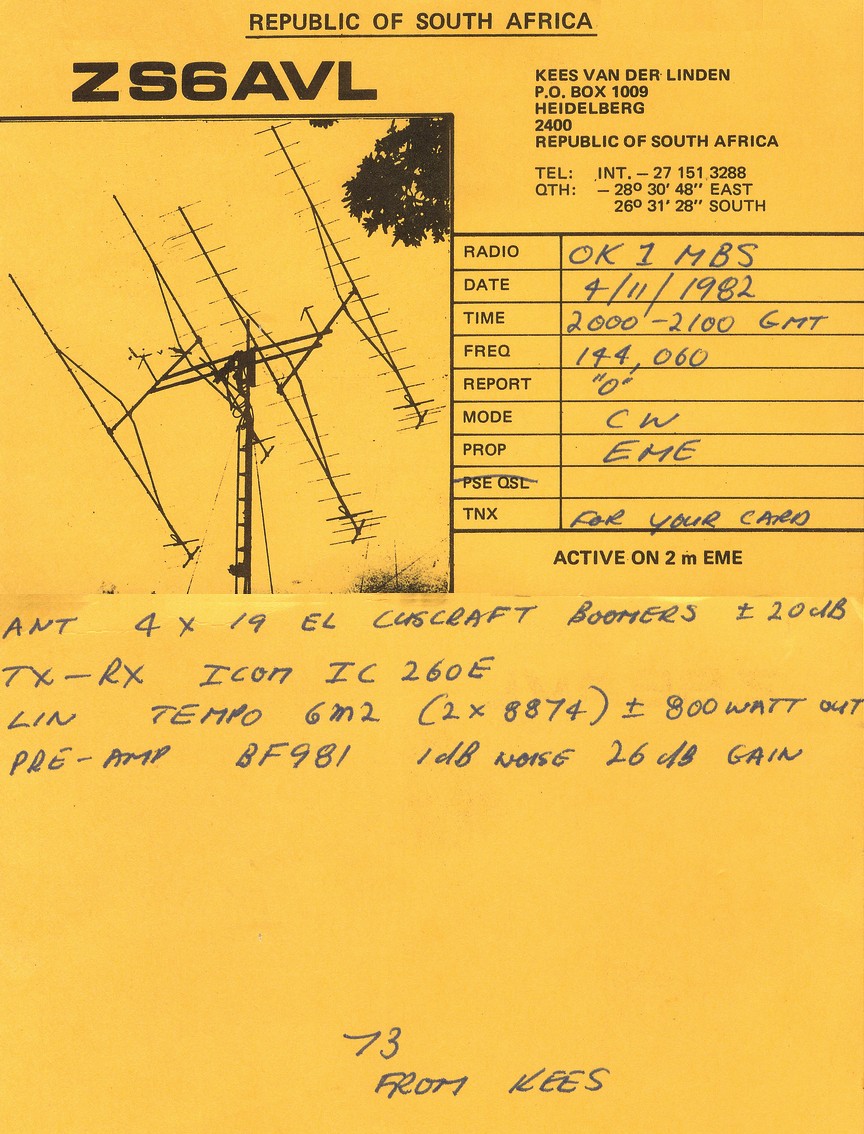 REPUBLIC OF SOUTH AFRICA
ZS6AVL
KEES VAN DER LINDEN
P.O. BOX 1009
HEIDELBERG
2400
REPUBLIC OF SOUTH AFRICA
TEL: INT. – 27 151 3288
QTH: – 28º 30' 48" EAST
26º 31' 28" SOUTH
RADIO OK 1 MBS
DATE 4/11/1982
TIME 2000-2100 GMT
FREQ 144,060
REPORT "O"
MODE CW
PROP EME
PSE QSL
TNX FOR YOUR CARD
ACTIVE ON 2 m EME
ANT 4 X 19 EL CUSCRAFT BOOMERS ± 20dB
TX-RX ICOM IC 260E
LIN TEMPO 6m2 (2 x 8874) ± 800 WATT OUT
PRE-AMP BF981 1dB NOISE 26 dB GAIN
73
FROM KEES